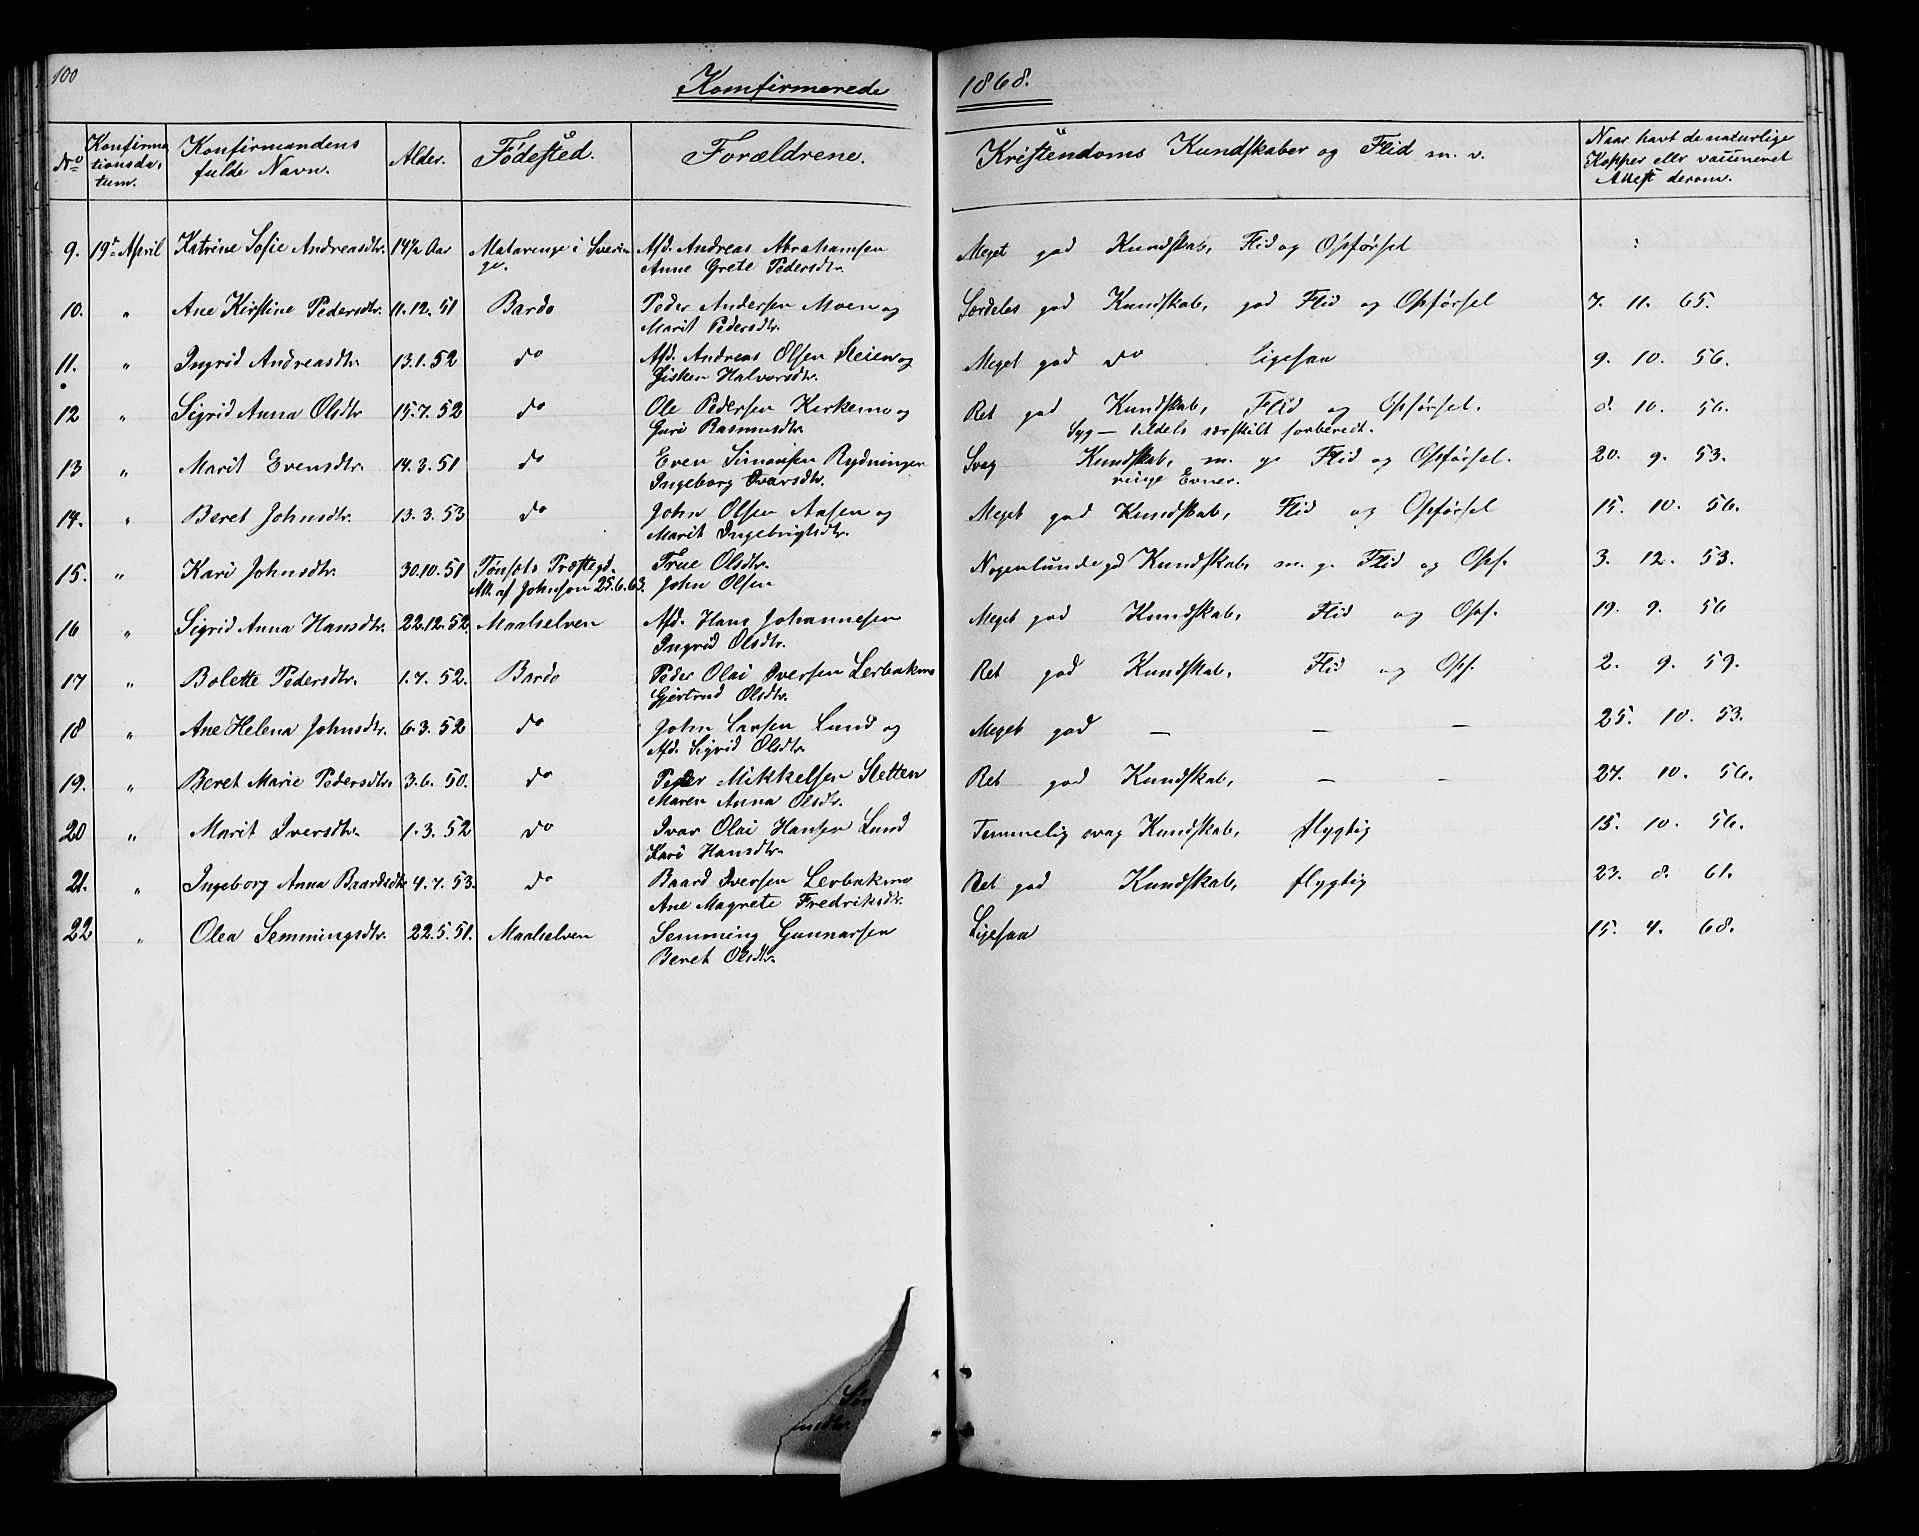 100
Komfirmerede 1868.
No Konfirmationsdatum. Konfirmandens fulde Navn. Alder. Fødested. Forældrene. Kristendoms Kundskaber og Flid m. v. Naar havt de naturlige Kopper eller vaccineret Attest derom.
9. 19de April Katrine Sofie Andreasdtr. 14½ Aar Matarenge i Sverige. Afd. Andreas Abrahamsen Meget god Kundskab, Flid og Opførsel :
Anne Grete Pedersdtr.
10. " Ane Kirstine Pedersdtr. 11.12.51 Bardo Peder Andersen Moen og Særdeles god Kundskab, god Flid og Opførsel 7. 11. 65.
Marit Pedersdtr.
11. " Ingrid Andreasdtr. 13.1.52 do Afd. Andreas Olsen Steien og Meget god do ligesaa 9. 10. 56.
Gisken Halvorsdtr.
12 " Sigrid Anna Olsdtr 15.7.52 do Ole Pedersen Kirkemo og Ret god Kundskab, Flid og Opførsel. 8. 10. 56.
Guri Rasmusdtr. Syg — tildels særskilt forberedt.
13 " Marit Evensdtr. 14.3.51 do Even Simonsen Rydningen Svag Kundskab, m. g. Flid og Opførsel. 20. 9. 53.
Ingeborg Ivarsdtr. ringe Evner.
14. " Beret Johnsdtr. 13.3.53 do John Olsen Aasen og Meget god Kundskab, Flid og Opførsel 15. 10. 56.
Marit Ingebrigtsdtr.
15. " Kari Johnsdtr. 30.10.51 Tønsets Præstegd. True Olsdtr. Nogenlunde gd Kundskab, m. g. Flid og Opf. 3. 12. 53.
Att. af Johnson 25.6.63. John Olsen
16 " Sigrid Anna Hansdtr. 22.12.52. Maalselven Afd. Hans Johannesen Meget god Kundskab, Flid og Opf. 19. 9. 56
Ingrid Olsdtr.
17 " Bolette Pedersdtr. 1.7.52. Bardo Peder Olai Iversen Lerbakmo Ret god Kundskab, Flid og Opf. 2. 9. 59.
Gjertrud Olsdtr.
18 " Ane Helena Johnsdtr. 6.3.52 do John Larsen Lund og Meget god — — — 25. 10. 53.
Afd. Sigrid Olsdtr.
19. " Beret Marie Pedersdtr. 3.6.50. do Peder Mikkelsen Sletten Ret god Kundskab, — — 27. 10. 56.
Maren Anna Olsdtr.
20 " Marit Iversdtr. 1.3.52 do Ivar Olai Hansen Lund Temmelig svag Kundskab, flygtig 15. 10. 56.
Kari Hansdtr.
21. " Ingeborg Anna Baardsdtr 4.7.53. do Baard Iversen Lerbakmo Ret god Kundskab, flygtig 23. 8. 61.
Ane Magrete Fredriksdtr.
22 " Olea Semmingsdtr. 22.5.51. Maalselven Semming Gunnarsen Ligesaa 15. 4. 68.
Beret Olsdtr.